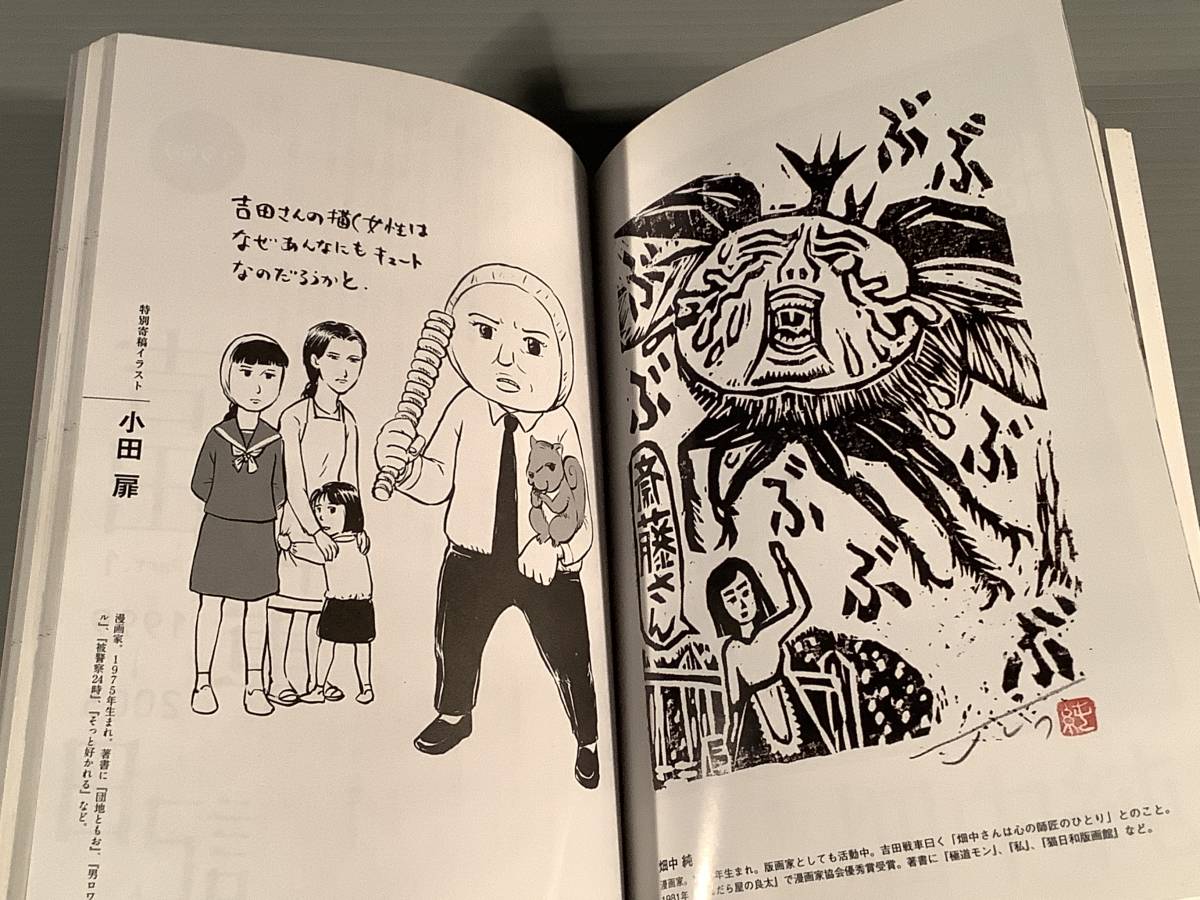 吉田さんの描く女性は
なぜあんなにもキュート
なのだろうかと.
特別寄稿イラスト
小田 扉
漫画家。1975年生まれ。著書に『団地ともお』、『男ロワ
ル』、『被警察24時』、『そっと好かれる』など。
ぶ
ぶ
ぶ
ぶ
ぶ
ぶ
ぶ
ぶ
斎藤さん
純
畑中 純
漫画家。 年生まれ。版画家としても活動中。吉田戦車曰く「畑中さんは心の師匠のひとり」とのこと。
1981年 だら屋の良太』で漫画家協会優秀賞受賞。著書に『極道モン』、『私』、『猫日和版画館』など。